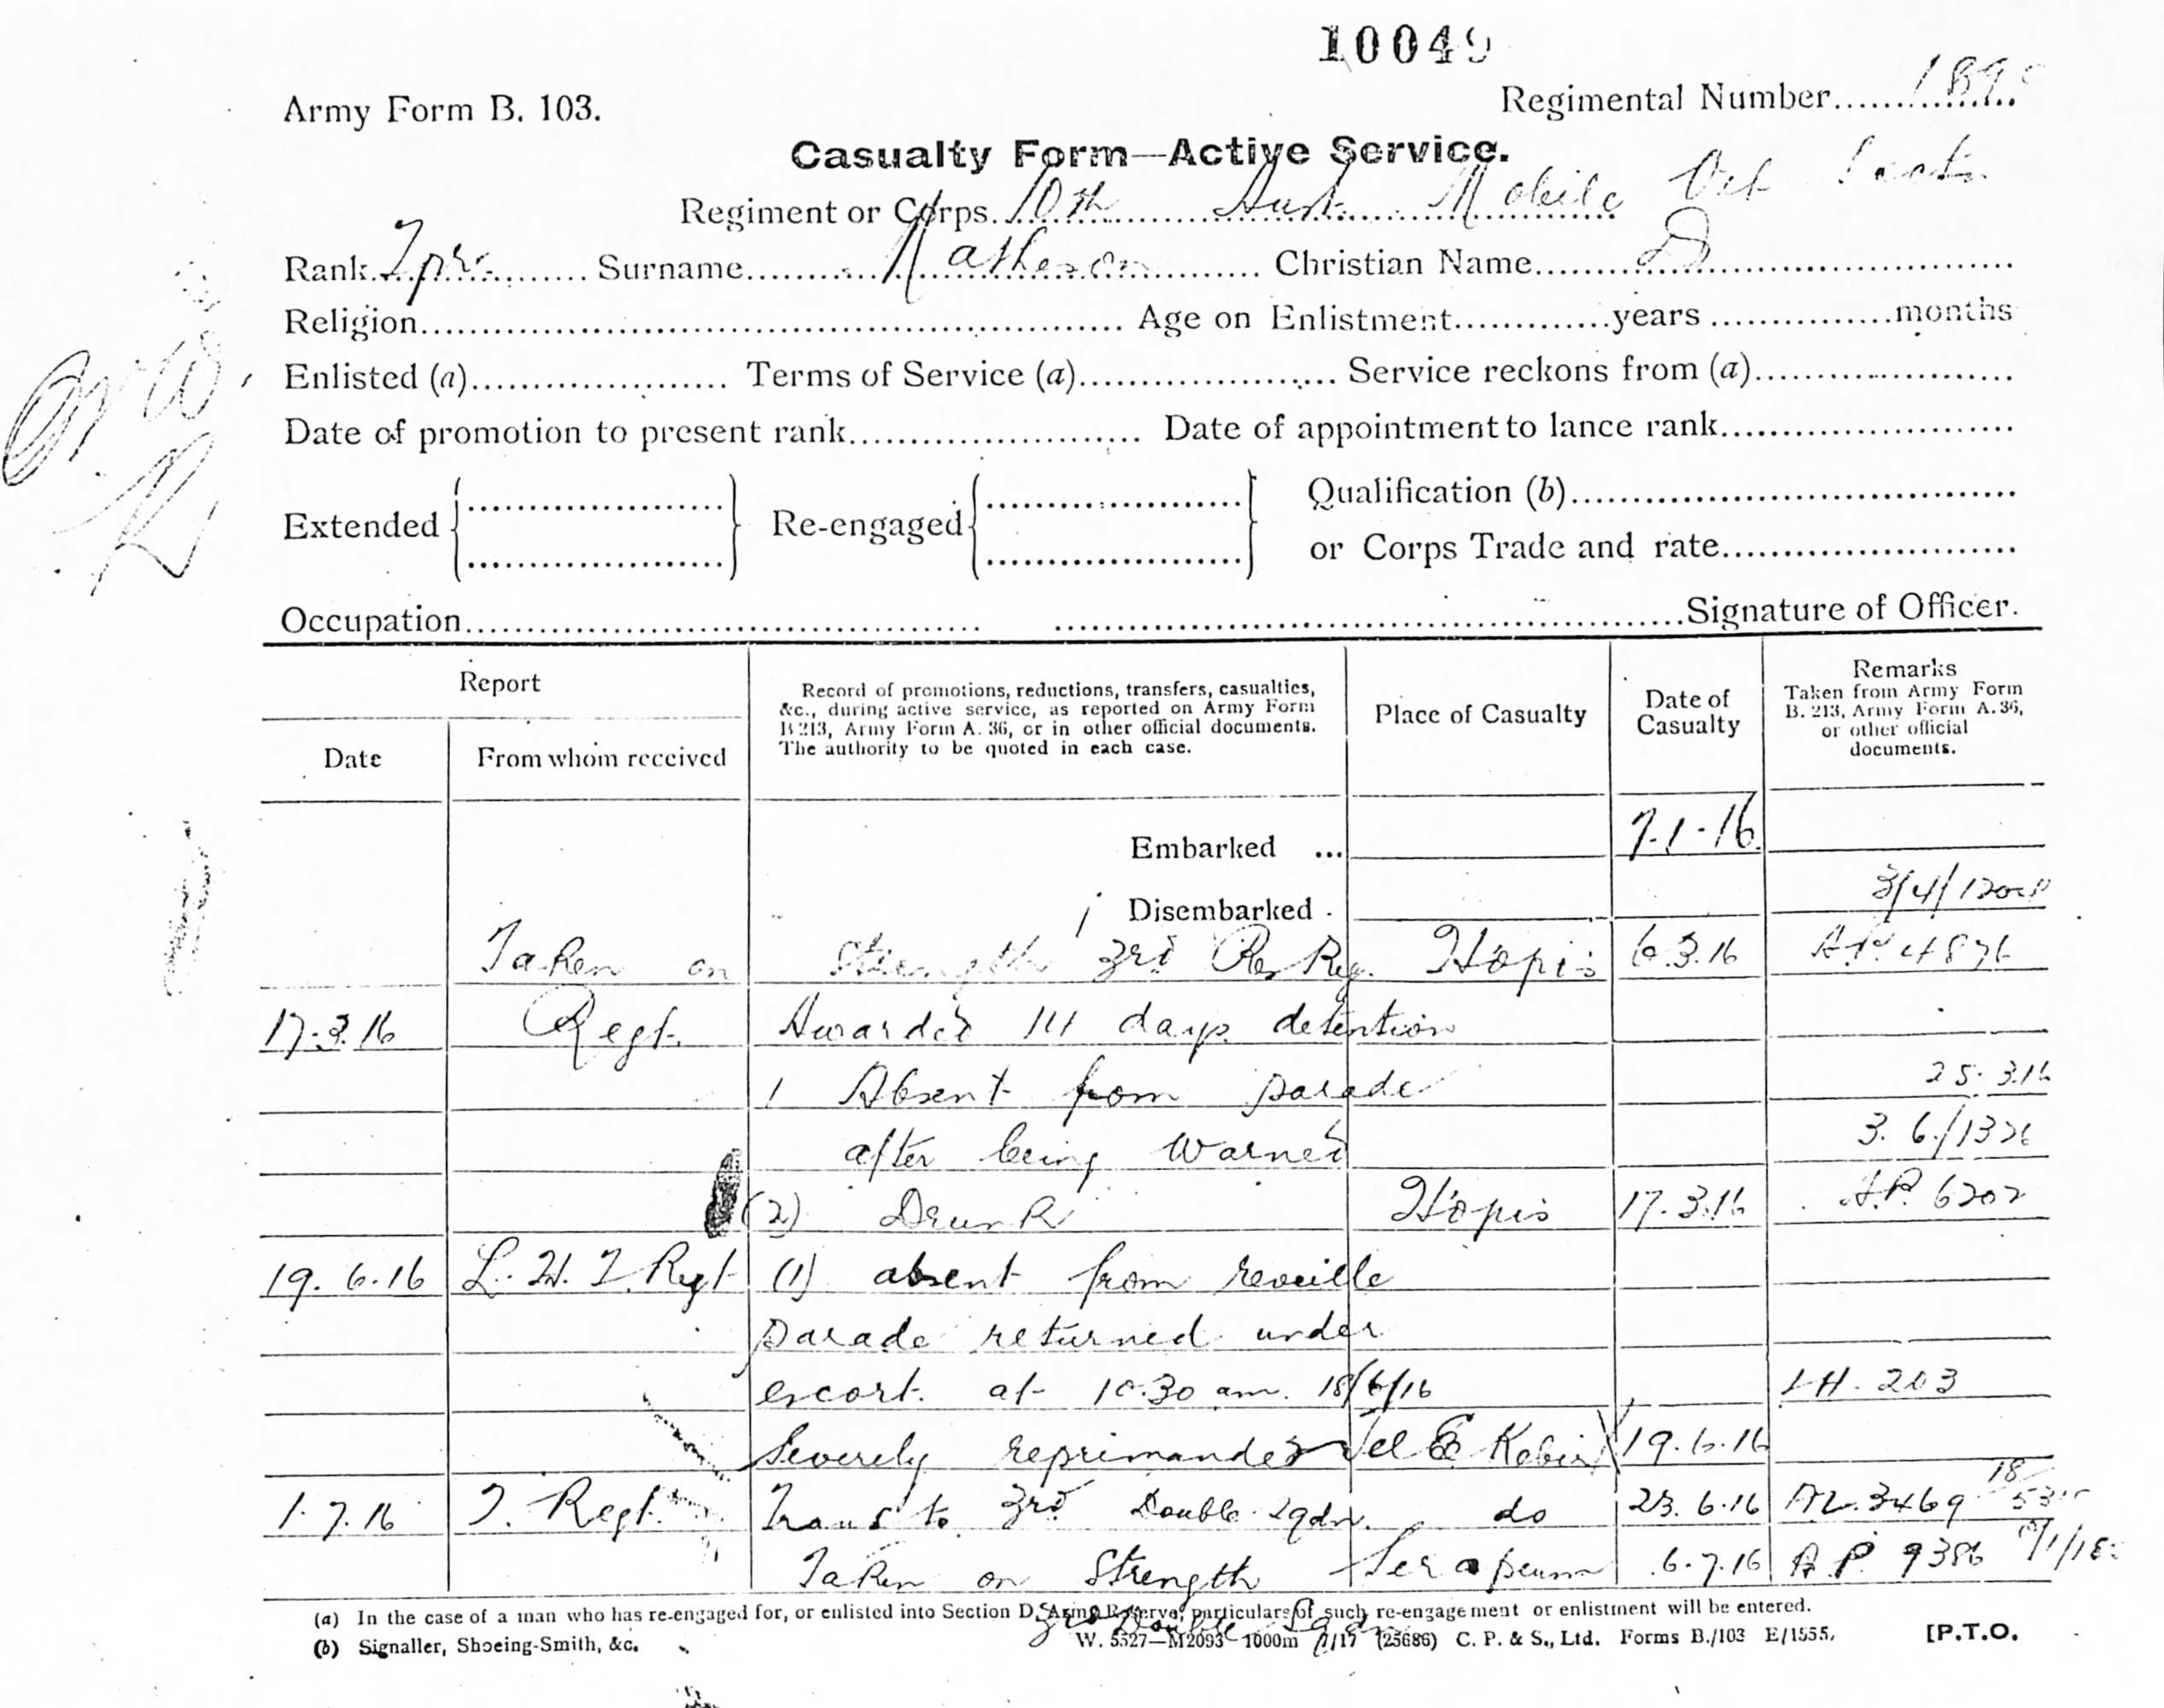 10049
Army Form B. 103.
Regimental Number
Casualty Form—Active Service.
Regiment or Corps 10th Aust Mobile Vet Sectn
Rank Tpr. Surname Matheson Christian Name D
Religion Age on Enlistment years months
Enlisted (a) Terms of Service (a) Service reckons from (a)
Date of promotion to present rank Date of appointment to lance rank
Extended Re-engaged Qualification (b)
or Corps Trade and rate
Occupation Signature of Officer.
Report
Date From whom received
Record of promotions, reductions, transfers, casualties, &c., during active service, as reported on Army Form B 213, Army Form A. 36, or in other official documents. The authority to be quoted in each case.
Place of Casualty
Date of Casualty
Remarks Taken from Army Form B. 213, Army Form A. 36, or other official documents.
Embarked ... 7-1-16
Disembarked
Taken on Strength 3rd Res Reg. 6.3.16
17.3.16 Regt. Awarded 14 days detention
1 Absent from parade 25.3.16
after being warned
(2) Drunk 17.3.16 A.P. 6202
19.6.16 (1) absent from reveille
parade returned under
escort. at 10.30 am. 18/6/16 LH. 203
Severely reprimanded Tel El Kebir 19.6.16
1.7.16 Regt. Trans to 3rd Double Sqdn. do 23.6.16 3469
Taken on Strength Serapeum 6.7.16 9386
3rd Double Sqdn
(a) In the case of a man who has re-engaged for, or enlisted into Section D, Army Reserve, particulars of such re-engagement or enlistment will be entered.
(b) Signaller, Shoeing-Smith, &c. W. 5527—M2093 1000m 7/17 (25686) C. P. & S., Ltd. Forms B./103 E/1555. [P.T.O.